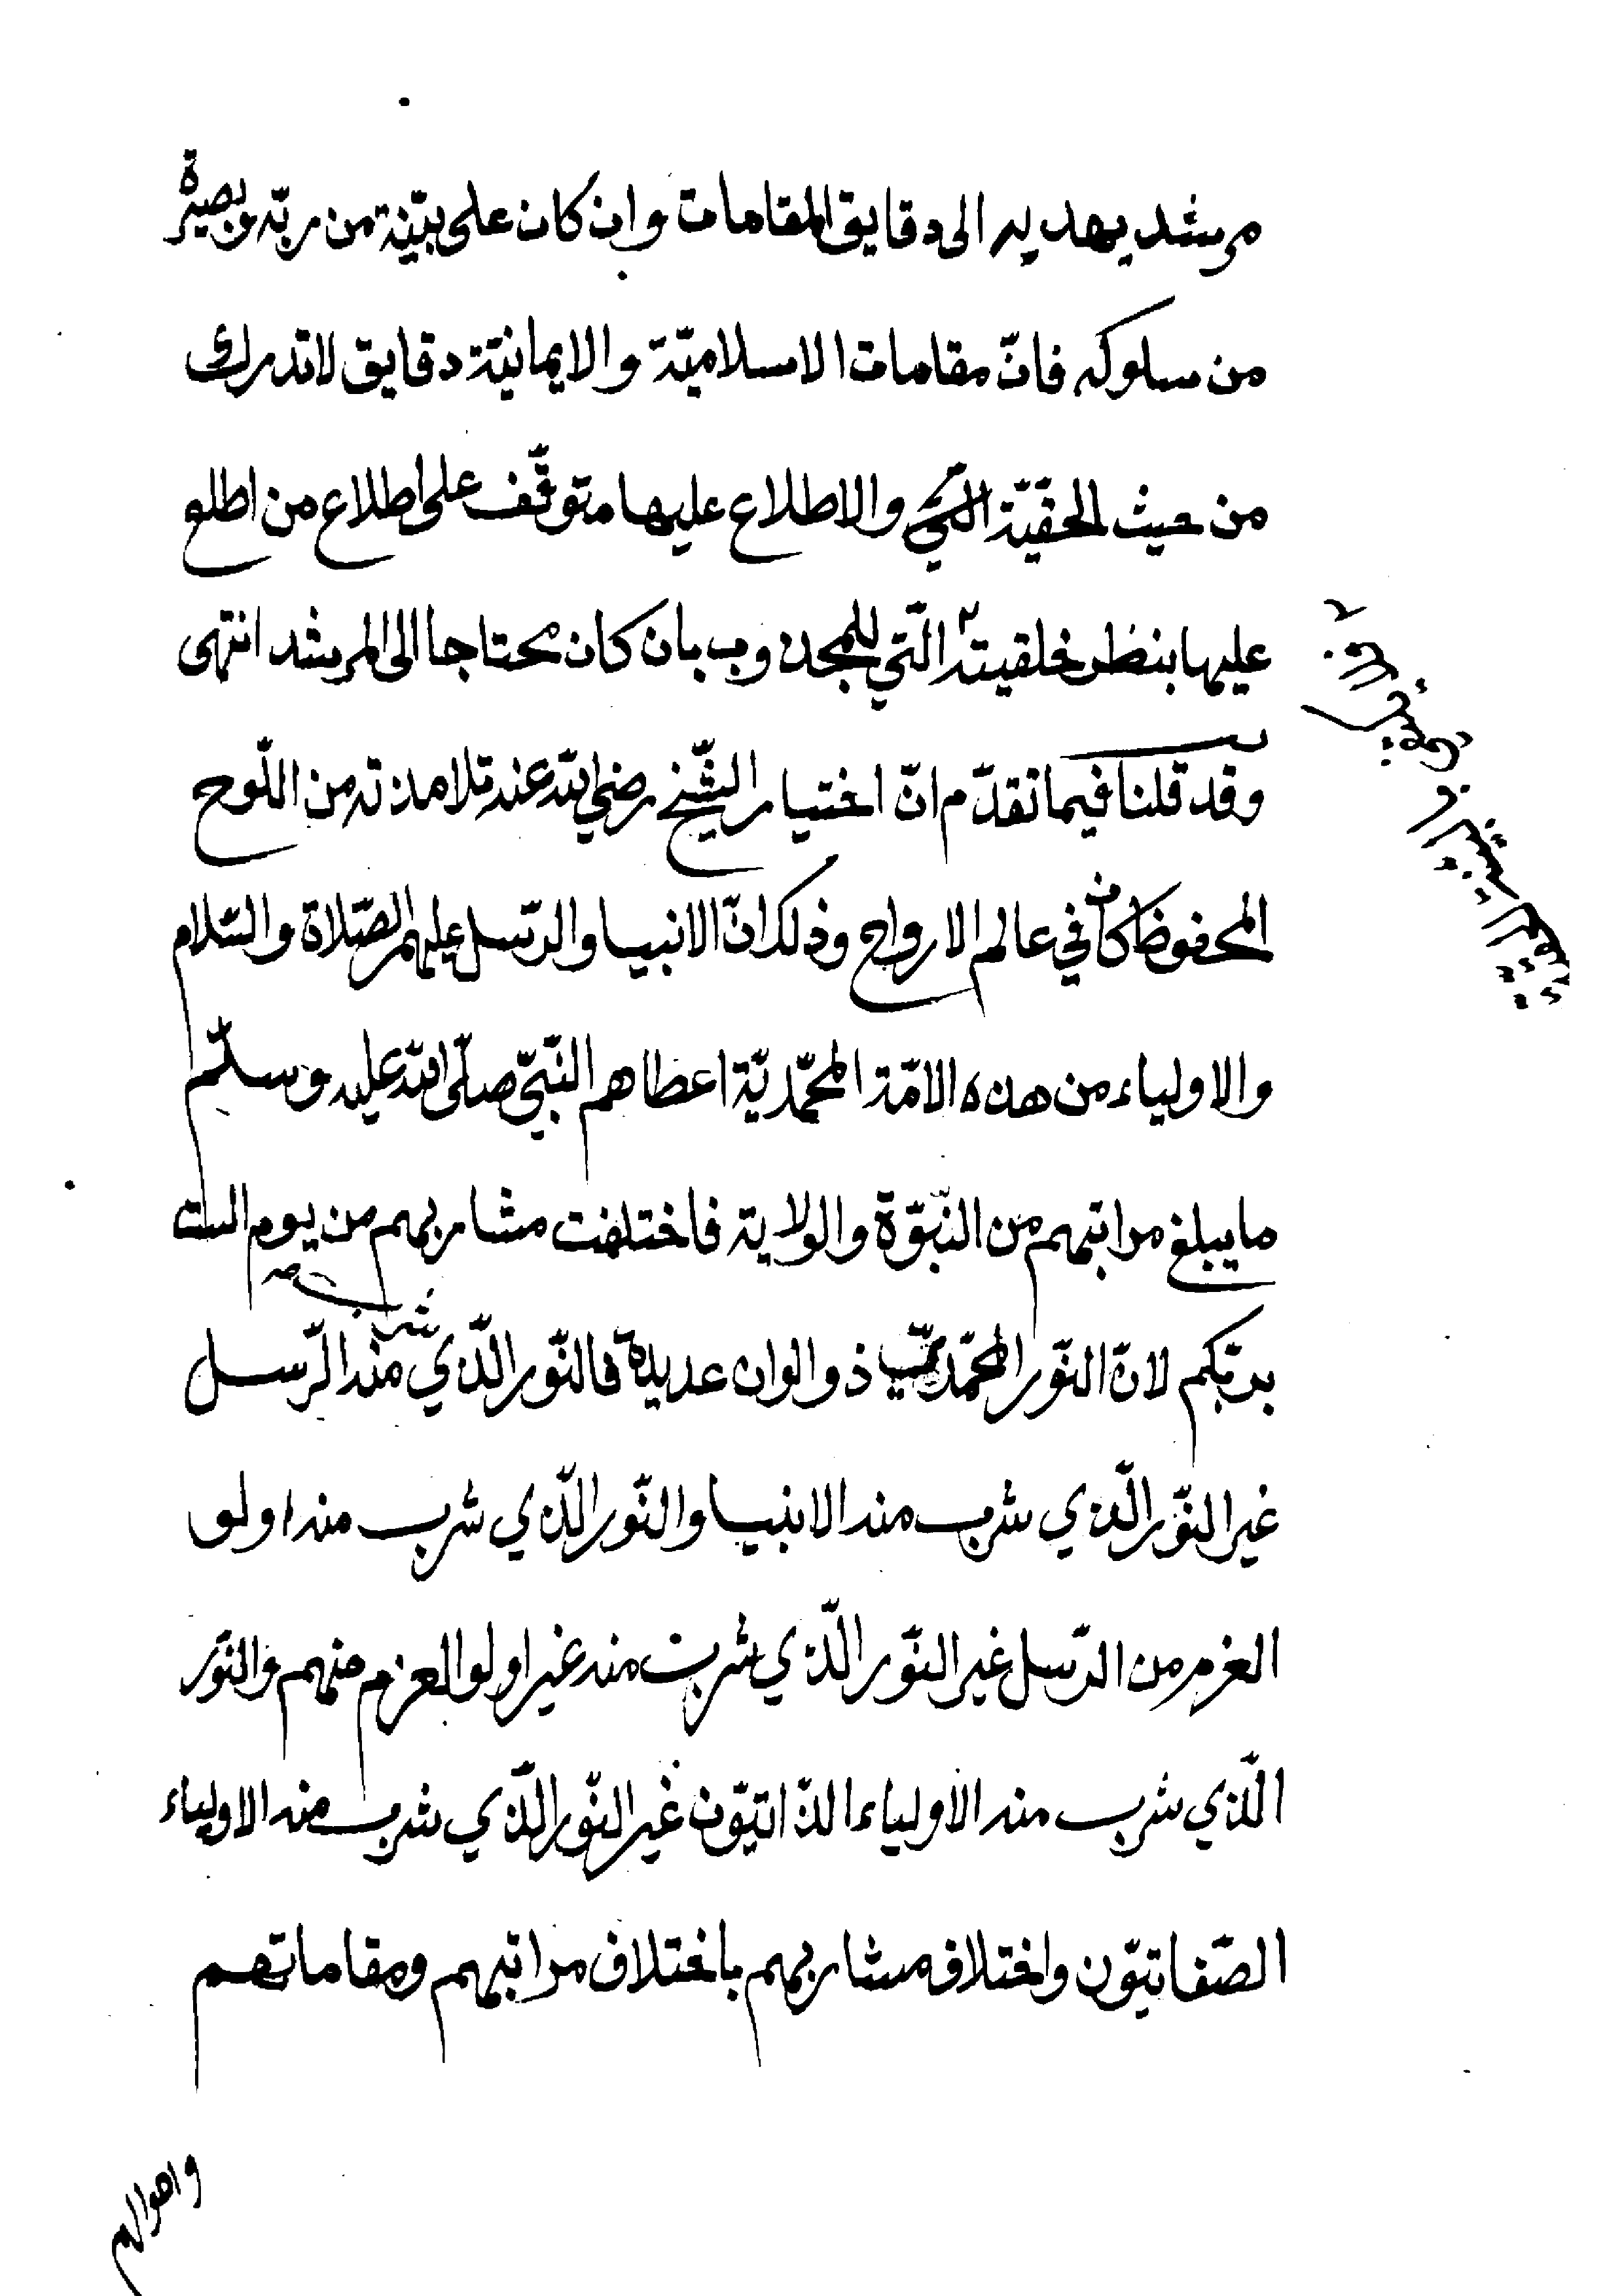 مرشد يهديه الى دقايق المقامات وان كان على بيّنة من ربّه وبصيرة
من سلوكه فانّ مقامات الاسلاميّة والايمانيّة دقايق لا تدرك
من حيث الحقّيّة الّتي والاطلاع عليها متوقّف على اطلاع من اطلع
عليها بنظر خلقيته الّتي للمجذوب بان كان محتاجا الى المرشد انتهى
وقد قلنا فيما تقدّم انّ اختيار الشّيخ رضي الله عنه تلامذته من اللّوح
المحفوظ كان في عالم الارواح وذلك انّ الانبيا والرّسل عليهم الصّلاة والسّلام
والاولياء من هذه الامّة المحمّديّة اعطاهم النّبيّ صلّى الله عليه وسلّم
ما يبلغ مراتبهم من النّبوّة والولاية فاختلفت مشاربهم من يوم الست
بربّكم لانّ النّور المحمّديّ ذو الوان عديدة فالنّور الّذي شرب منه الرّسل
غير النّور الّذي شرب منه الانبيا والنّور الّذي شرب منه اولو
العزم من الرّسل غير النّور الّذي شرب منه غير اولو العزم منهم والنّور
الّذي شرب منه الاولياء الذّاتيّون غير النّور الّذي شرب منه الاولياء
الصّفاتيّون واختلاف مشاربهم باختلاف مراتبهم ومقاماتهم
واحوالهم